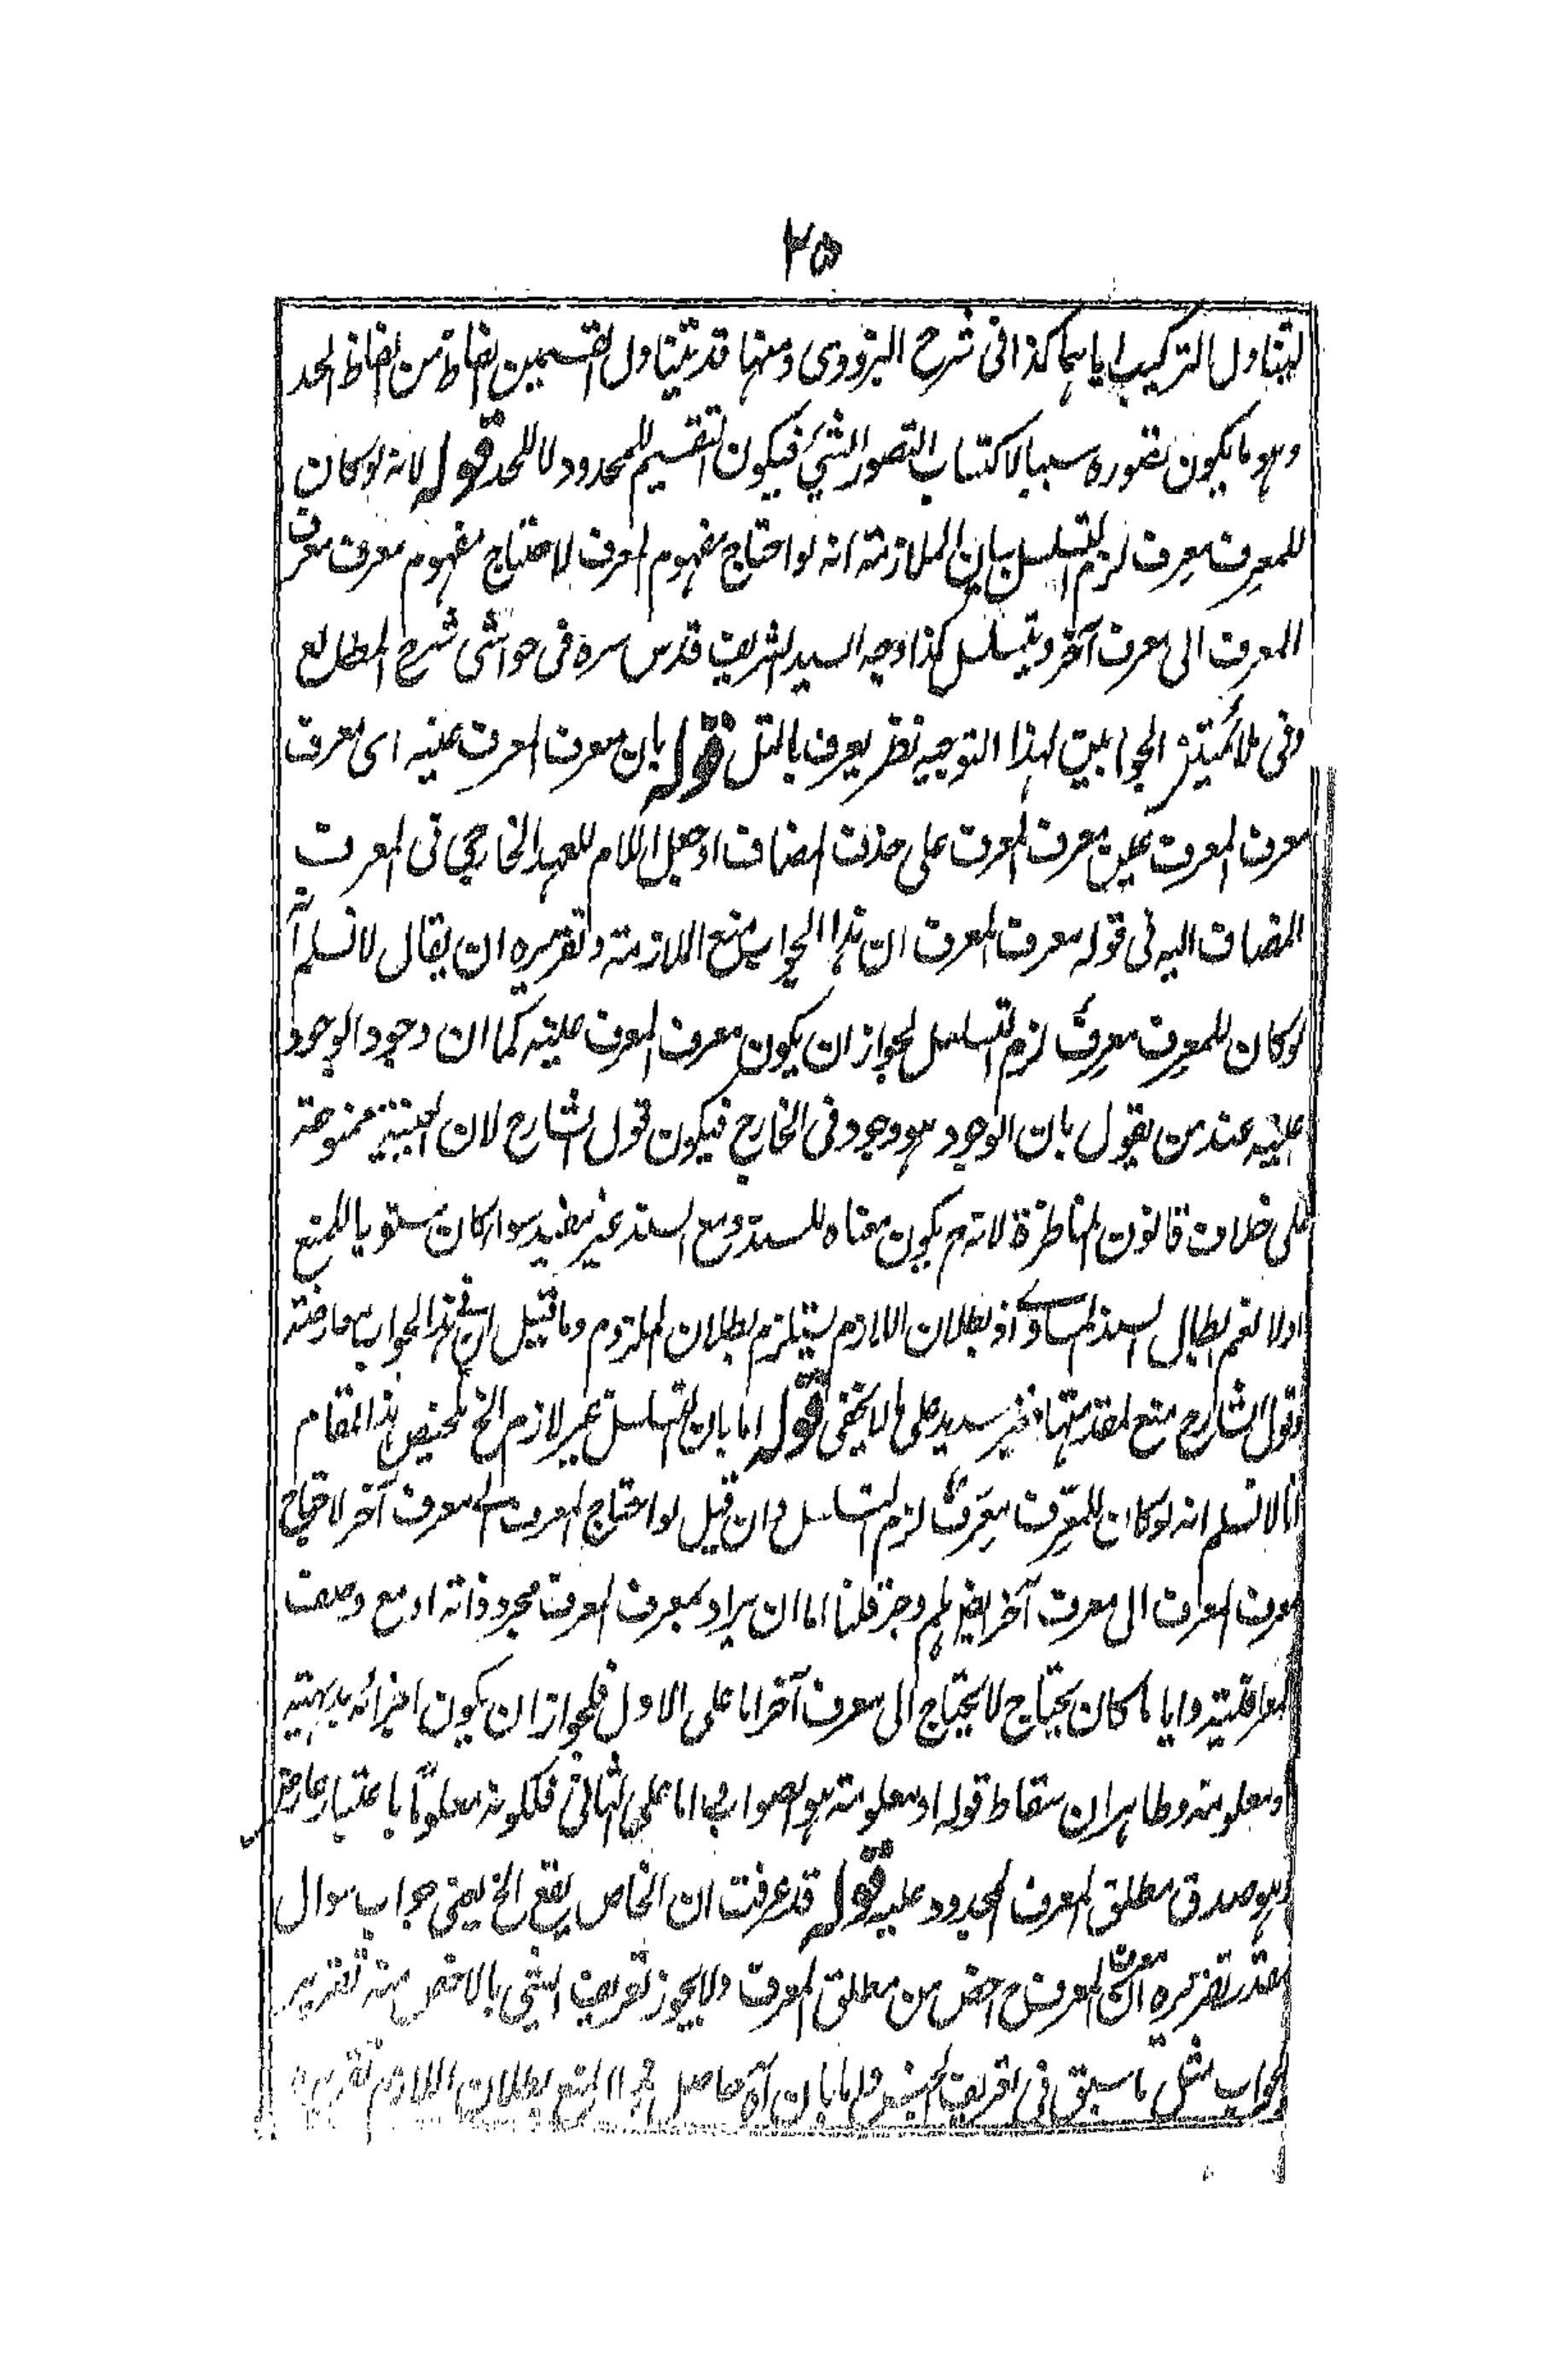 ٢٥
ليتناول التركيب اياهما كذا فى شرح البزدوى ومنها قد يتناول القسيمين لفظ من الفاظ الحد
وهو ما يكون تصوره سببا لاكتساب التصور الشئ فيكون التقسيم للمحدود لا للحد قوله لانه لو كان
للمعرف معرف لزم التسلسل بيان الملازمة انه لو احتاج مفهوم المعرف لاحتاج مفهوم معرف معرف
المعرف الى معرف آخر ويتسلسل كذا وجه السيد الشريف قدس سره فى حواشى شرح المطالع
وفى ملائمة الجوابين لهذا التوجيه نظر يعرف بالتامل قوله بان معرف المعرف عينه اى معرف
معرف المعرف عين معرف المعرف على حذف المضاف او جعل اللام للعهد الخارجى فى المعرف
المضاف اليه فى قوله معرف المعرف ان هذا الجواب منع الملازمة وتقريره ان يقال لا نسلم انه
لو كان للمعرف معرف لزم التسلسل لجواز ان يكون معرف المعرف عينه كما ان وجود الوجود
عينه عند من يقول بان الوجود موجود فى الخارج فيكون قول الشارح لان العينية ممنوعة
على خلاف قانون المناظرة لانه ح يكون منعا للسند ومنع السند غير مفيد سواء كان مستويا للمنع
او لا نعم ابطال السند المساوى اذ بطلان اللازم يستلزم بطلان الملزوم وما قيل ان فى هذا الجواب معارضة
وقول الشارح منع لمقدمتها فغير سديد على ما لا يخفى قوله اما بان التسلسل غير لازم الخ تلخيص هذا المقام
انا لا نسلم انه لو كان للمعرف معرف لزم التسلسل وان قيل لو احتاج المعرف الى معرف آخر لاحتاج
معرف المعرف الى معرف آخر لغير هلم وجر قلنا اما ان يراد بمعرف المعرف مجرد ذاته او مع وصف
المعرفية وايا ما كان يحتاج لا يحتاج الى معرف آخر اما على الاول فلجواز ان يكون اجزائه بديهية
او معلومة وظاهر ان سقاط قوله او معلومة هو الصواب اما على الثانى فلكونه معلوما باعتبار عارض
وهو صدق مطلق المعرف المحدود عليه قوله قد عرفت ان الخاص يقع الخ يعنى جواب سوال
مقدر تقريره ان المعرف ح اخص من مطلق المعرف ولا يجوز تعريف الشئ بالاخص منه تقرير
الجواب مثل ما سبق فى تعريف الجنس واما بان آه حاصل هذا المنع بطلان اللازم تقريره